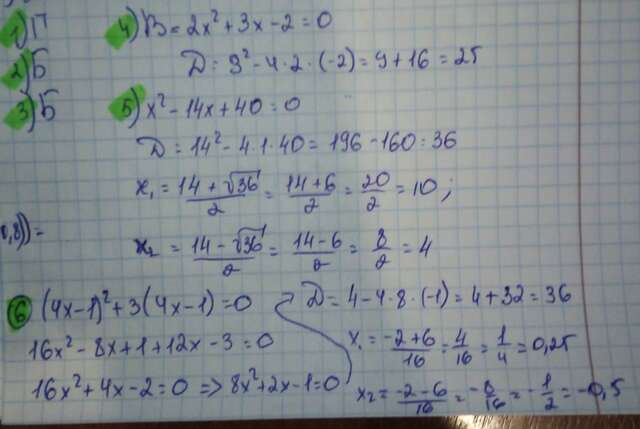 1) П
2) Б
3) Б
4) В = 2x² + 3x - 2 = 0
D = 3² - 4 · 2 · (-2) = 9 + 16 = 25
5) x² - 14x + 40 = 0
D = 14² - 4 · 1 · 40 = 196 - 160 = 36
x₁ = (14 + √36)/2 = (14 + 6)/2 = 20/2 = 10;
x₂ = (14 - √36)/2 = (14 - 6)/2 = 8/2 = 4
,8)) =
6) (4x - 1)² + 3(4x - 1) = 0
16x² - 8x + 1 + 12x - 3 = 0
16x² + 4x - 2 = 0 => 8x² + 2x - 1 = 0
D = 4 - 4 · 8 · (-1) = 4 + 32 = 36
x₁ = (-2 + 6)/16 = 4/16 = 1/4 = 0,25
x₂ = (-2 - 6)/16 = -8/16 = -1/2 = -0,5